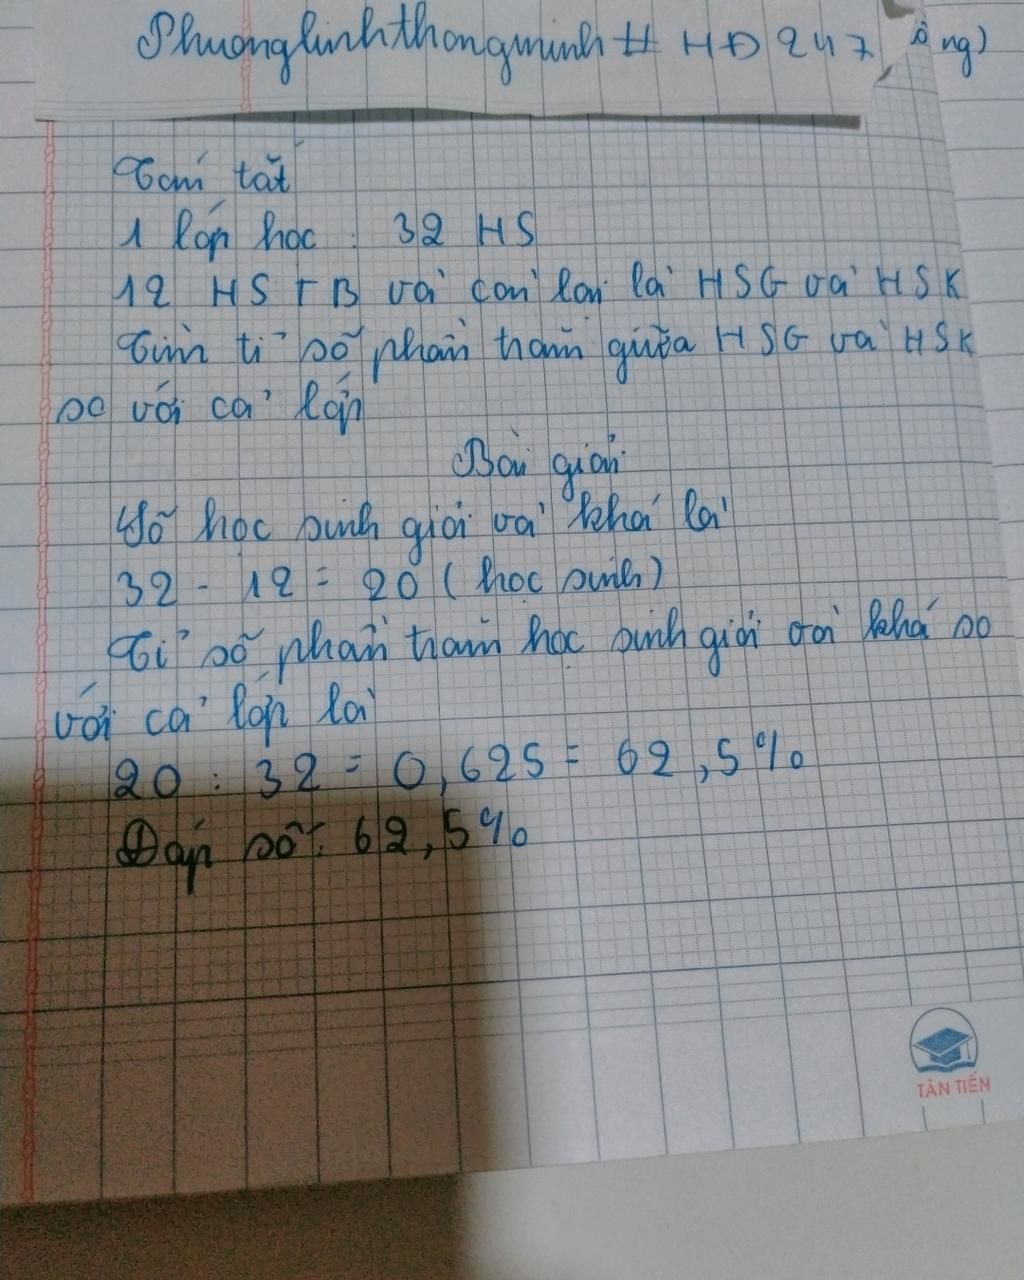 Phuonglinhthongminh # HĐ 247
ông)
Tóm tắt
1 lớp học : 32 HS
12 HS TB và còn lại là HSG và HSK
Tìm tỉ số phần trăm giữa HSG và HSK
so với cả lớp
Bài giải
Số học sinh giỏi và khá là
32 - 12 = 20 ( học sinh)
Tỉ số phần trăm học sinh giỏi và khá so
với cả lớp là
20 : 32 = 0,625 = 62,5%
Đáp số: 62,5%
TÂN TIẾN